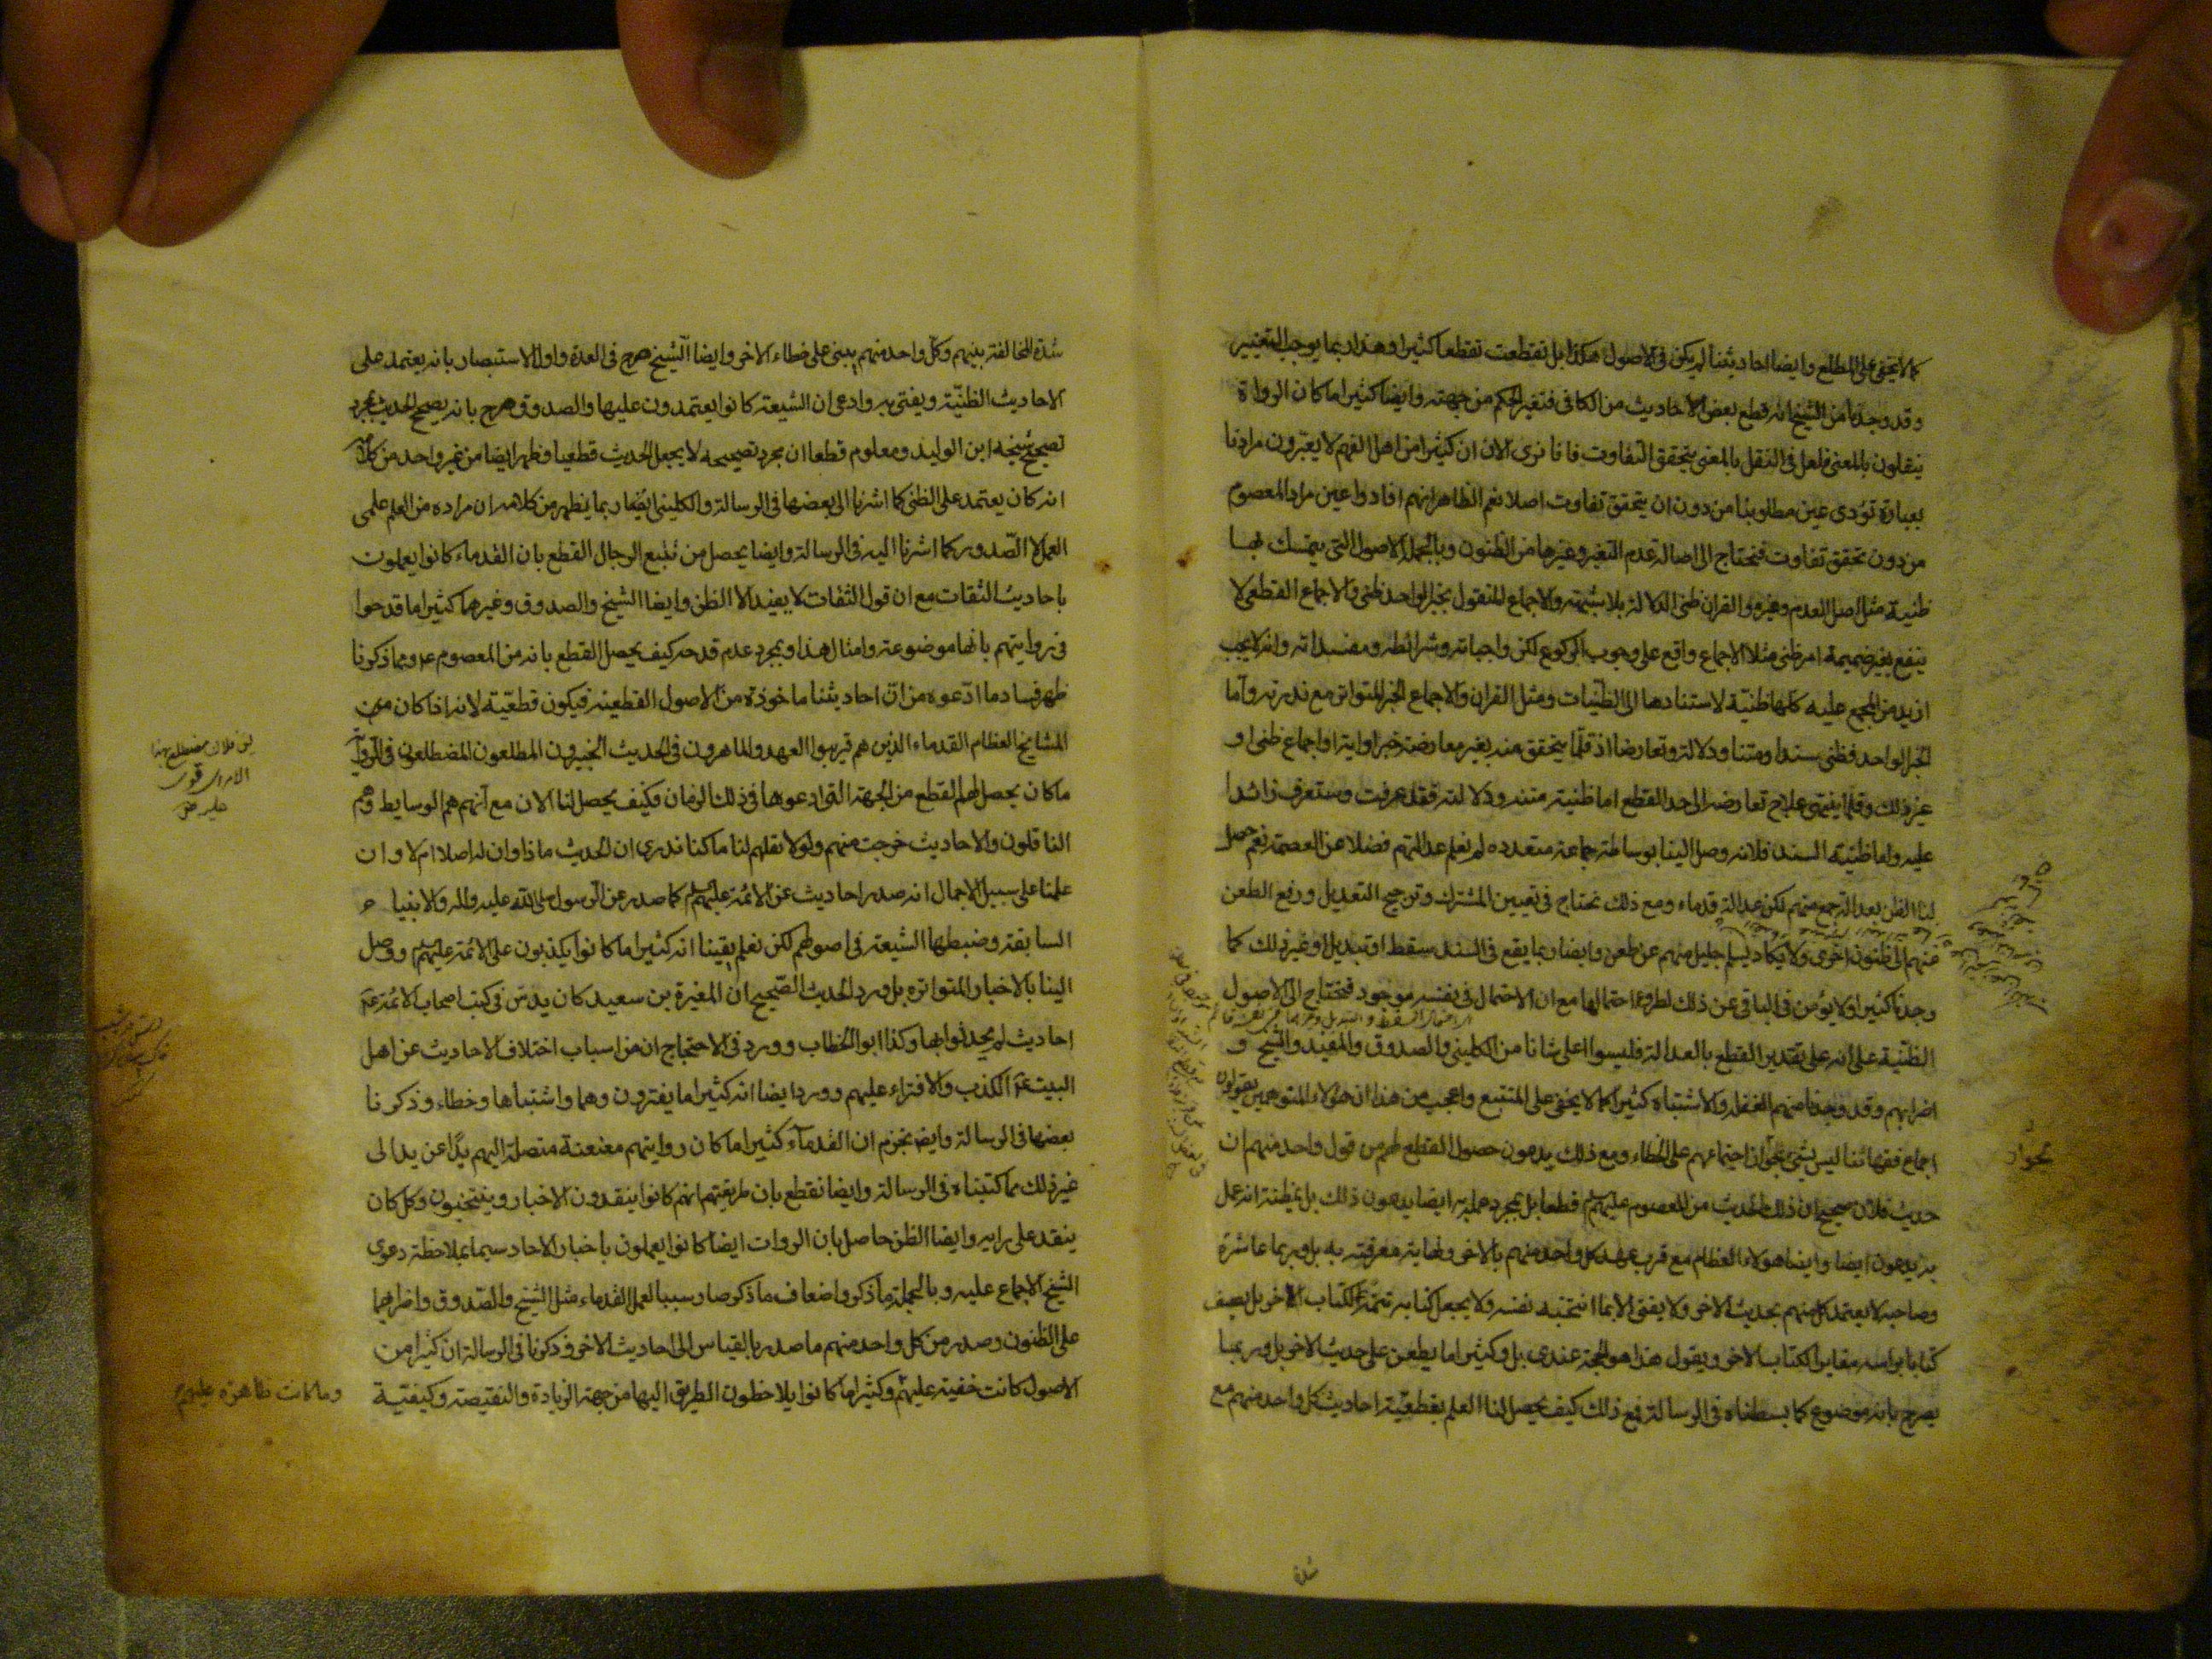 كما لا يخفى على المطلع وايضا احاديثنا لم يكن فى الاصول هكذا بل تقطعت تقطعا كثيرا وهذا ربما يوجب التغيير
وقد وجدنا من الشيخ انه قطع بعض الاحاديث من الكافى فتغير الحكم من جهته وايضا كثيرا ما كان الرواة
ينقلون بالمعنى فلعل فى النقل بالمعنى يتحقق التفاوت فانا نرى الان ان كثيرا من اهل الفهم لا يعبرون مرادنا
بعبارة تؤدى عين مطلوبنا من دون ان يتحقق تفاوت اصلا نعم الظاهر انهم افادوا عين مراد المعصوم
من دون تحقق تفاوت فنحتاج الى اصالة عدم التغير وغيرها من الظنون وبالجملة الاصول التى يتمسك بها
ظنية مثل اصل العدم وغيره والقران ظنى الدلالة بلا شبهة والاجماع المنقول بخبر الواحد ظنى والاجماع القطعى لا
ينفع بغير ضميمة امر ظنى مثلا الاجماع واقع على وجوب الركوع لكن واجباته وشرائطه ومفسداته وانه لا يجب
ازيد من المجمع عليه كلها ظنية لاستنادها الى الظنيات ومثل القران والاجماع الخبر المتواتر مع ندرته واما
الخبر الواحد فظنى سندا ومتنا ودلالة وتعارضا اذ قلما يتحقق منه بغير معارضة خبر او اية او اجماع ظنى او
غير ذلك وقلما ينتهى علاج تعارضه الى حد القطع اما ظنية متنه ودلالته فقد عرفت وستعرف زائدا
عليه واما ظنية السند فلانه وصل الينا بوساطة جماعة متعدده لم نعلم عدالتهم فضلا عن العصمة نعم حصل
لنا الظن بعدالة جمع منهم لكن عدالة قدماء ومع ذلك نحتاج فى تعيين المشترك وترجيح التعديل ورفع الطعن
منهم الى ظنون اخرى ولا يكاد يسلم جليل منهم عن طعن وايضا ربما يقع فى السند سقط او تبديل او غير ذلك كما
وجدنا كثيرا ولا يؤمن فى الباقى عن ذلك احتمالها مع ان الاحتمال فى نفسه موجود فنحتاج الى الاصول
الظنية على انه على تقدير القطع بالعدالة فليسوا اعلى شانا من الكلينى والصدوق والمفيد والشيخ و
اضرابهم وقد وجدنا منهم الغفلة والاشتباه كثيرا كما لا يخفى على المتتبع واعجب من هذا ان هؤلاء المتوهمين يقولون
اجماع فقهائنا ليس بشئ لجواز اجتماعهم على الخطاء ومع ذلك يدعون حصول القطع لهم من قول واحد منهم ان
حديث فلان صحيح ان ذلك الحديث من المعصوم عليهم السلام قطعا بل بمجرد عمله به ايضا يدعون ذلك بل بمظنة انه عمل
به يدعون ايضا وايضا هولاء العظام مع قرب عهد كل واحد منهم بالاخر ونهاية معرفته به بل وربما عاشره
وصاحبه لا يعتمد كل منهم بحديث الاخر ولا يفتى الا بما انتخبه نفسه ولا يجعل كتابه تتمة لكتاب الاخر بل يصنف
كتابا براسه مغايرا لكتاب الاخر ويقول هذا هو الحجة عندى بل وكثيرا ما يطعن على حديث الاخر بل وربما
يصرح بانه موضوع كما بسطناه فى الرسالة فمع ذلك كيف يحصل لنا العلم بقطعية احاديث كل واحد منهم مع
شدة
شدة المخالفة بينهم وكل واحد منهم يبنى على خطاء الاخر وايضا الشيخ صرح فى العدة واول الاستبصار بانه يعتمد على
الاحاديث الظنية ويفتى به وادعى ان الشيعة كانوا يعتمدون عليها والصدوق صرح بانه يصحح الحديث بمجرد
تصحيح شيخه ابن الوليد ومعلوم قطعا ان مجرد تصحيحه لا يجعل الحديث قطعيا فظهر ايضا من غير واحد من كلامه
انه كان يعتمد على الظنى كما اشرنا الى بعضها فى الرسالة والكلينى ايضا ربما يظهر من كلامه ان مراده من العلم علمى
العمل لا الصدور كما اشرنا اليه فى الرسالة وايضا يحصل من تتبع الرجال القطع بان القدماء كانوا يعملون
باحاديث الثقات مع ان قول الثقات لا يفيد الا الظن وايضا الشيخ والصدوق وغيرهما كثيرا ما قدحوا
فى روايتهم بانها موضوعة وامثال هذا وبمجرد عدم قدحه كيف يحصل القطع بانه من المعصوم ع ومما ذكرنا
ظهر فساد ما ادعوه من ان احاديثنا ماخوذة من الاصول القطعية فيكون قطعية لانه اذا كان مثل
المشايخ العظام القدماء الذين هم قريبوا العهد والماهرون فى الحديث الخبيرون المطلعون المضطلعون فى الرواية
ما كان يحصل لهم القطع من الجهة التى ادعوها فى ذلك الزمان فكيف يحصل لنا الان مع انهم هم الوسايط وهم
الناقلون والاحاديث خرجت منهم ولولا نقلهم لنا ما كنا ندرى ان الحديث ماذا وان له اصلا ام لا وان
علمنا على سبيل الاجمال انه صدر احاديث عن الائمة عليهم السلام كما صدر عن الرسول صلى الله عليه واله والانبياء
السابقة وضبطها الشيعة فى اصولهم لكن نعلم يقينا انه كثيرا ما كانوا يكذبون على الائمة عليهم السلام ووصل
الينا بالاخبار المتواتره بل ورد الحديث الصحيح ان المغيرة بن سعيد كان يدس فى كتب اصحاب الائمة ع
احاديث لم يحدثوا بها وكذا ابو الخطاب وورد فى الاحتجاج ان من اسباب اختلاف الاحاديث عن اهل
البيت ع الكذب والافتراء عليهم وورد ايضا انه كثيرا ما يفترون وهما واشتباها وخطاء وذكرنا
بعضها فى الرسالة وايضا نجزم ان القدماء كثيرا ما كان روايتهم معنعنة متصلة اليهم يدا عن يد الى
غير ذلك مما كتبناه فى الرسالة وايضا نقطع بان طريقتهم انهم كانوا ينقدون الاخبار وينتخبون وكل كان
ينقد على رايه وايضا الظن حاصل بان الروات ايضا كانوا يعملون باخبار الاحاد سيما بملاحظة دعوى
الشيخ الاجماع عليه وبالجملة ما ذكر واضعاف ما ذكر صار سببا لعمل القدماء مثل الشيخ والصدوق واضرابهما
على الظنون وصدر من كل واحد منهم ما صدر بالقياس الى احاديث الاخر وذكرنا فى الرسالة ان كثيرا من
الاصول كانت خفية عليهم وكثيرا ما كانوا يلاحظون الطريق اليها من جهة الزيادة والنقيصة وكيفية
وما كانت ظاهرة عليهم